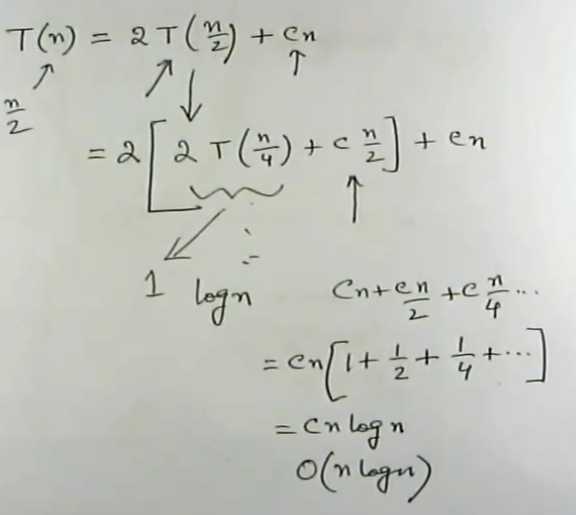 T(n) = 2T(n/2) + cn
n/2
= 2[2T(n/4) + c n/2] + cn
1 logn
Cn + cn/2 + c n/4 ...
= cn[1 + 1/2 + 1/4 + ...]
= cn log n
O(n logn)